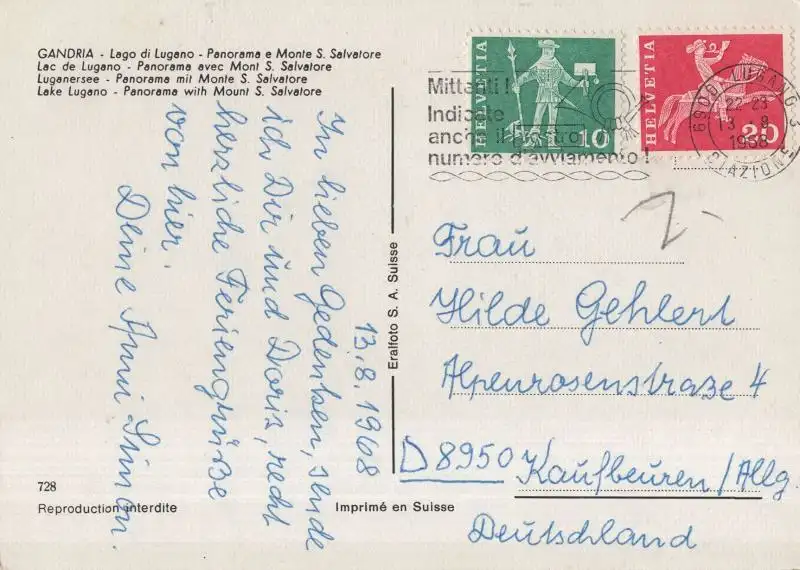 GANDRIA - Lago di Lugano - Panorama e Monte S. Salvatore
Lac de Lugano - Panorama avec Mont S. Salvatore
Luganersee - Panorama mit Monte S. Salvatore
Lake Lugano - Panorama with Mount S. Salvatore
13.8.1968
In lieben Gedenken, sende
ich Dir und Doris, recht
herzliche Feriengrüße
von hier.
Deine Anni Simon.
728
Reproduction interdite
Imprimé en Suisse
Eralfoto S. A. Suisse
HELVETIA
10
HELVETIA
20
Mittenti!
Indicate
anche il vostro
numero d'avviamento!
6900 LUGANO 3
22-23
13.-8
1968
STAZIONE
Frau
Hilde Gehlert
Alpenrosenstraße 4
D 8950 Kaufbeuren/Allg.
Deutschland